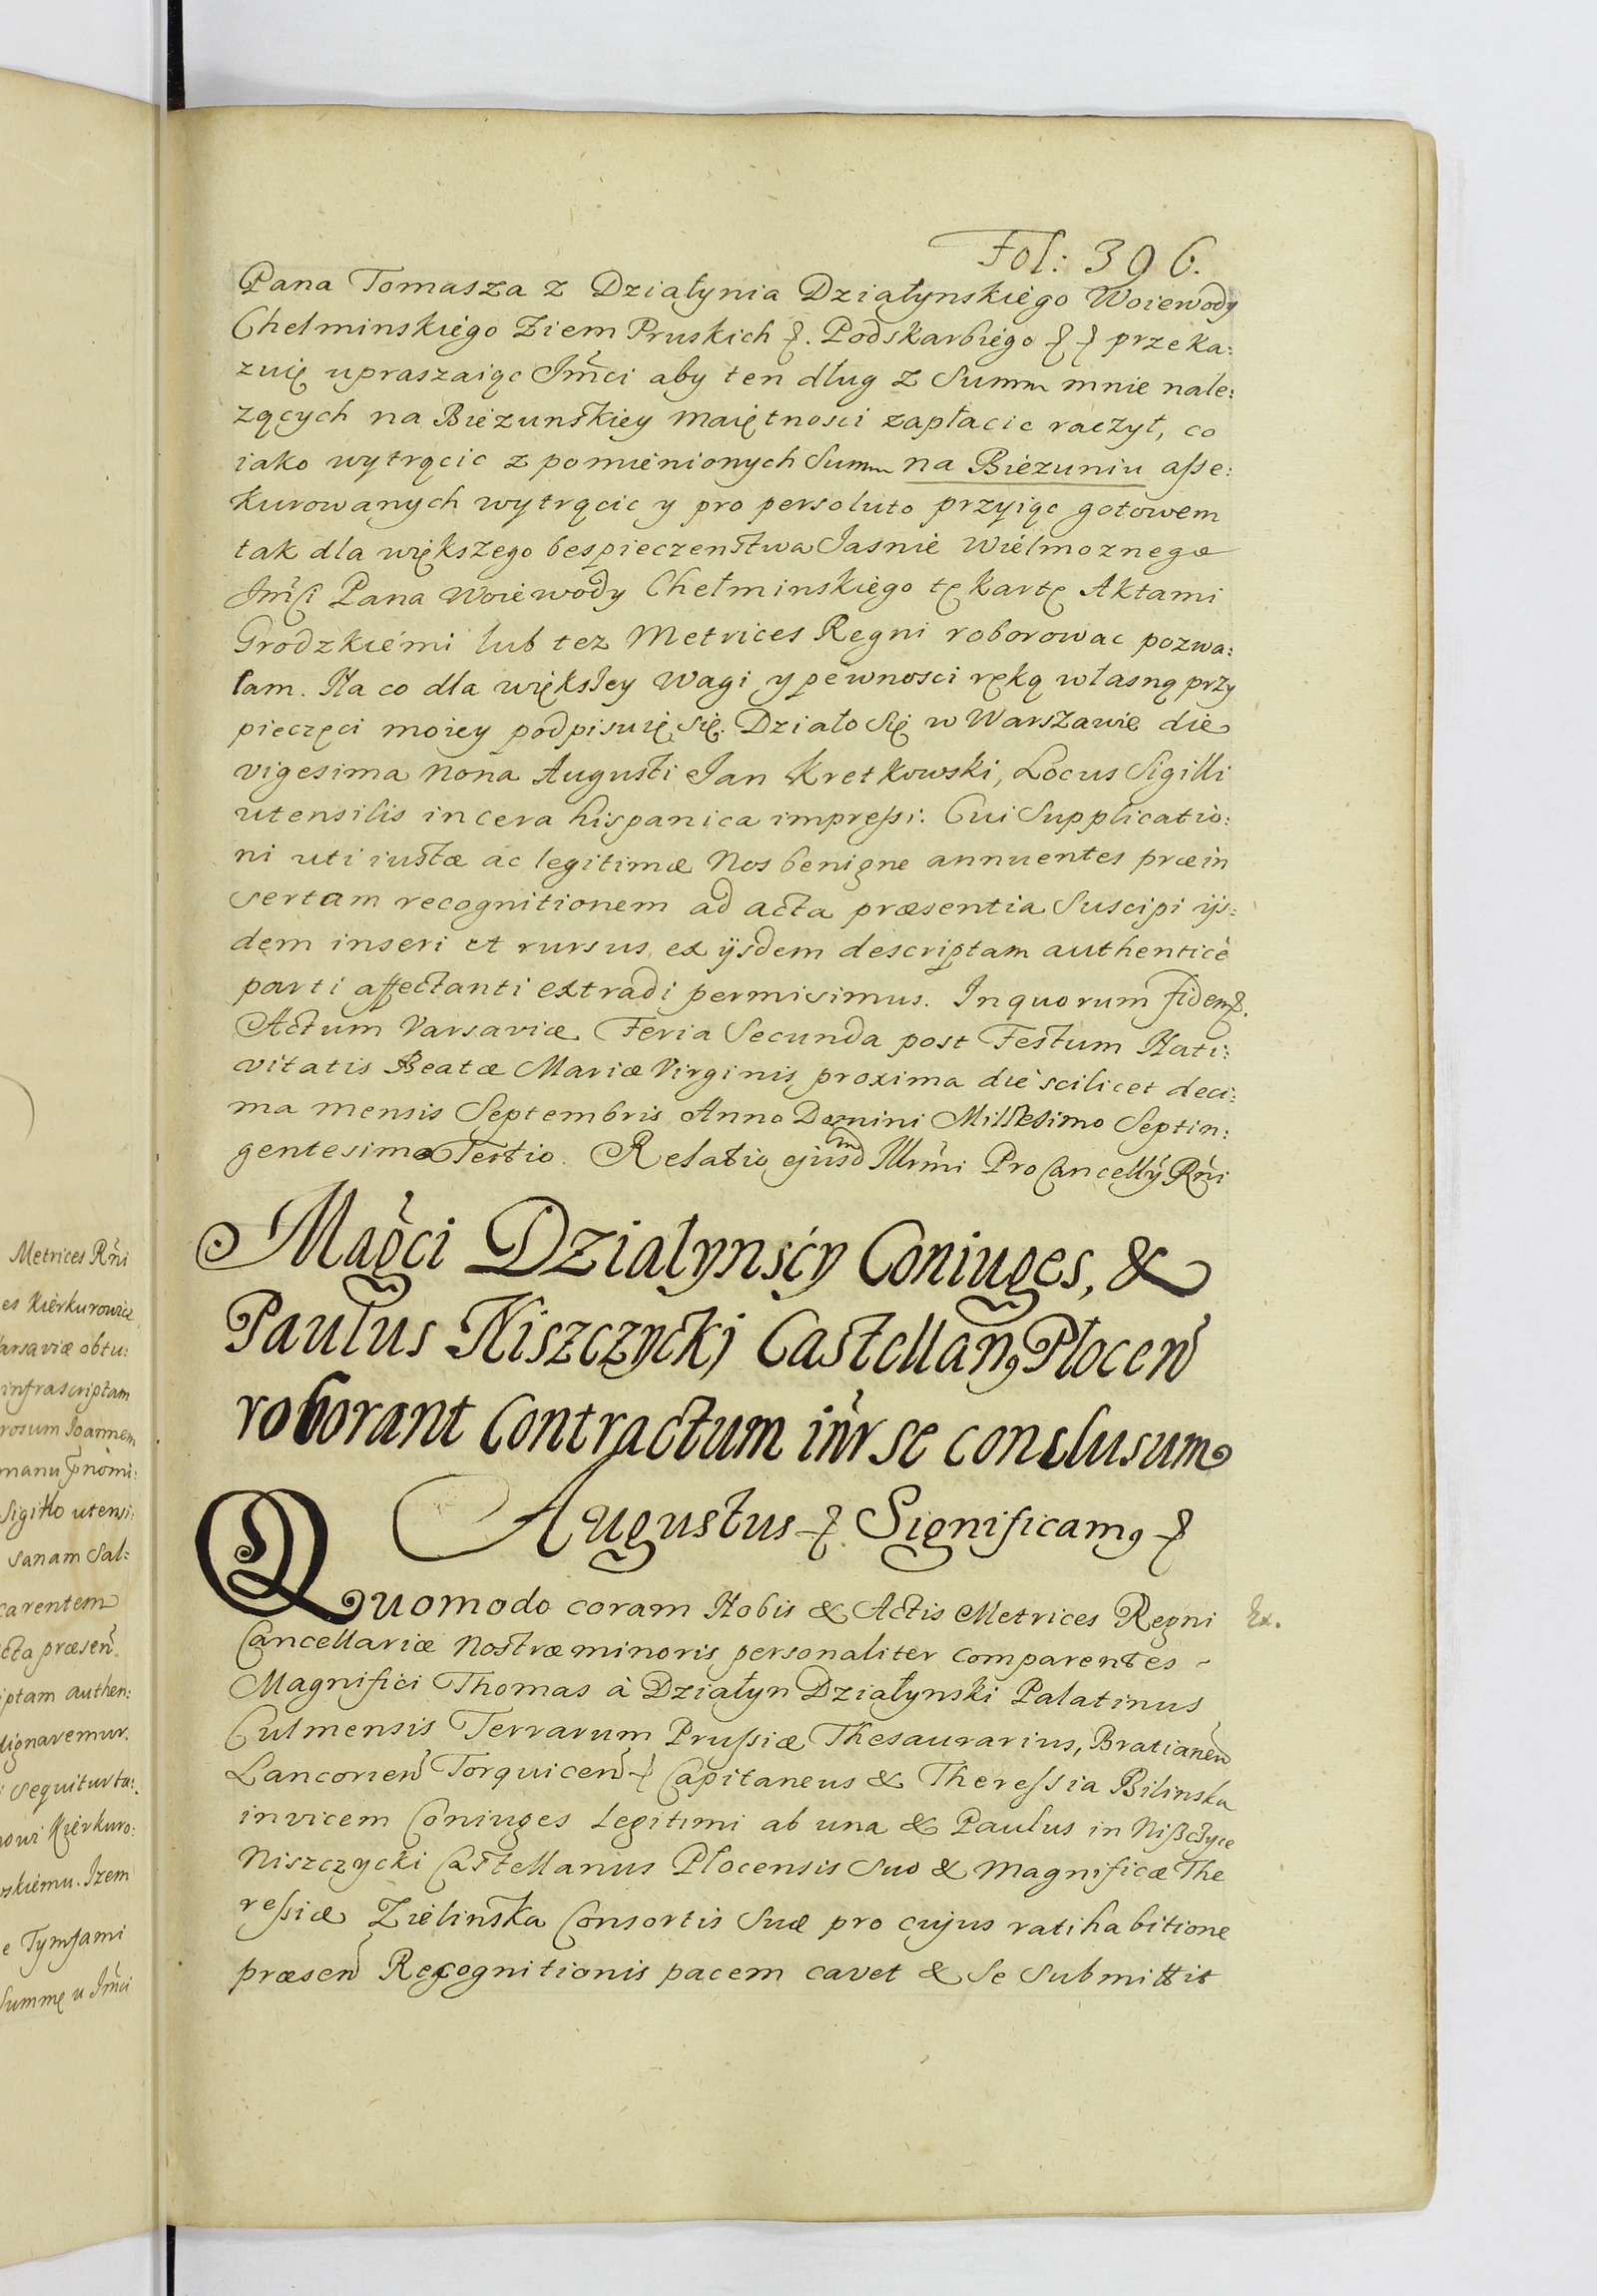 Fol: 396.
Pana Tomasza z Działynia Działynskiego Woiewody
Chełminskiego Ziem Pruskich &. Podskarbiego & & przeka:
zuię upraszaiąc Jm̃ci aby ten dług z Summ mnie nale:
zących na Biezunskiey maiętnosci zapłacic raczył, co
iako wytrącic z pomienionych Summ na Biezuniu asse:
kurowanych wytrącic y pro persoluto przyiąc gotowem
tak dla większego bespieczenstwa Jasnie Wielmoznego
Jm̃ci Pana Woiewody Chełminskiego tę kartę Aktami
Grodzkiemi lub tez Metrices Regni roborowac pozwa:
lam. Na co dla większey wagi y pewnosci ręką własną przy
pieczęci moiey podpisuię się. Działo się w Warszawie die
vigesima nona Augusti Jan Kretkowski, Locus Sigilli
utensilis in cera hispanica impressi. Cui Supplicatio:
ni uti iustæ ac legitimæ Nos benigne annuentes præin
sertam recognitionem ad acta præsentia Suscipi ijs:
dem inseri et rursus ex ijsdem descriptam authenticè
parti affectanti extradi permisimus. In quorum fidem &.
Actum Varsaviæ Feria Secunda post Festum Nati:
vitatis Beatæ Mariæ Virginis proxima die scilicet deci:
ma mensis Septembris Anno Domini Millesimo Septin:
gentesimo Tertio. Relatio ejusdm Illrm̃i ProCancellij Rñi
Magc̃i Dzialynscy Coniuges, &
Paulus Niszczycki Castellanꝰ Płoceñ
roborant Contractum iñr se conclusum
Augustus & Significamꝰ &
Quomodo coram Nobis & Actis Metrices Regni
Ex.
Cancellariæ Nostræ minoris personaliter comparentes -
Magnifici Thomas à Działyn Działynski Palatinus
Culmensis Terrarum Prussiæ Thesaurarius, Bratianeñ
Lancorieñ Torquiceñ & Capitaneus & Theressia Bilinska
invicem Coniuges Legitimi ab una & Paulus in Nißczyce
Niszczycki Castellanus Płocensis Suo & Magnificæ The
ressiæ Zielinska Consortis Suæ pro cujus ratihabitione
præseñ Recognitionis pacem cavet & Se Submittit
Metrices Rñi
es Kierkurowicz
arsaviæ obtu:
infrascriptam
rosum Joannem
Sigillo utensi:
sanam Sal:
carentem
cta præseñ.
iptam authen:
dignaremur.
sequitur ta:
owi Kierkuro:
skiemu. Izem
e Tymfami
Summę u Jm̃ci